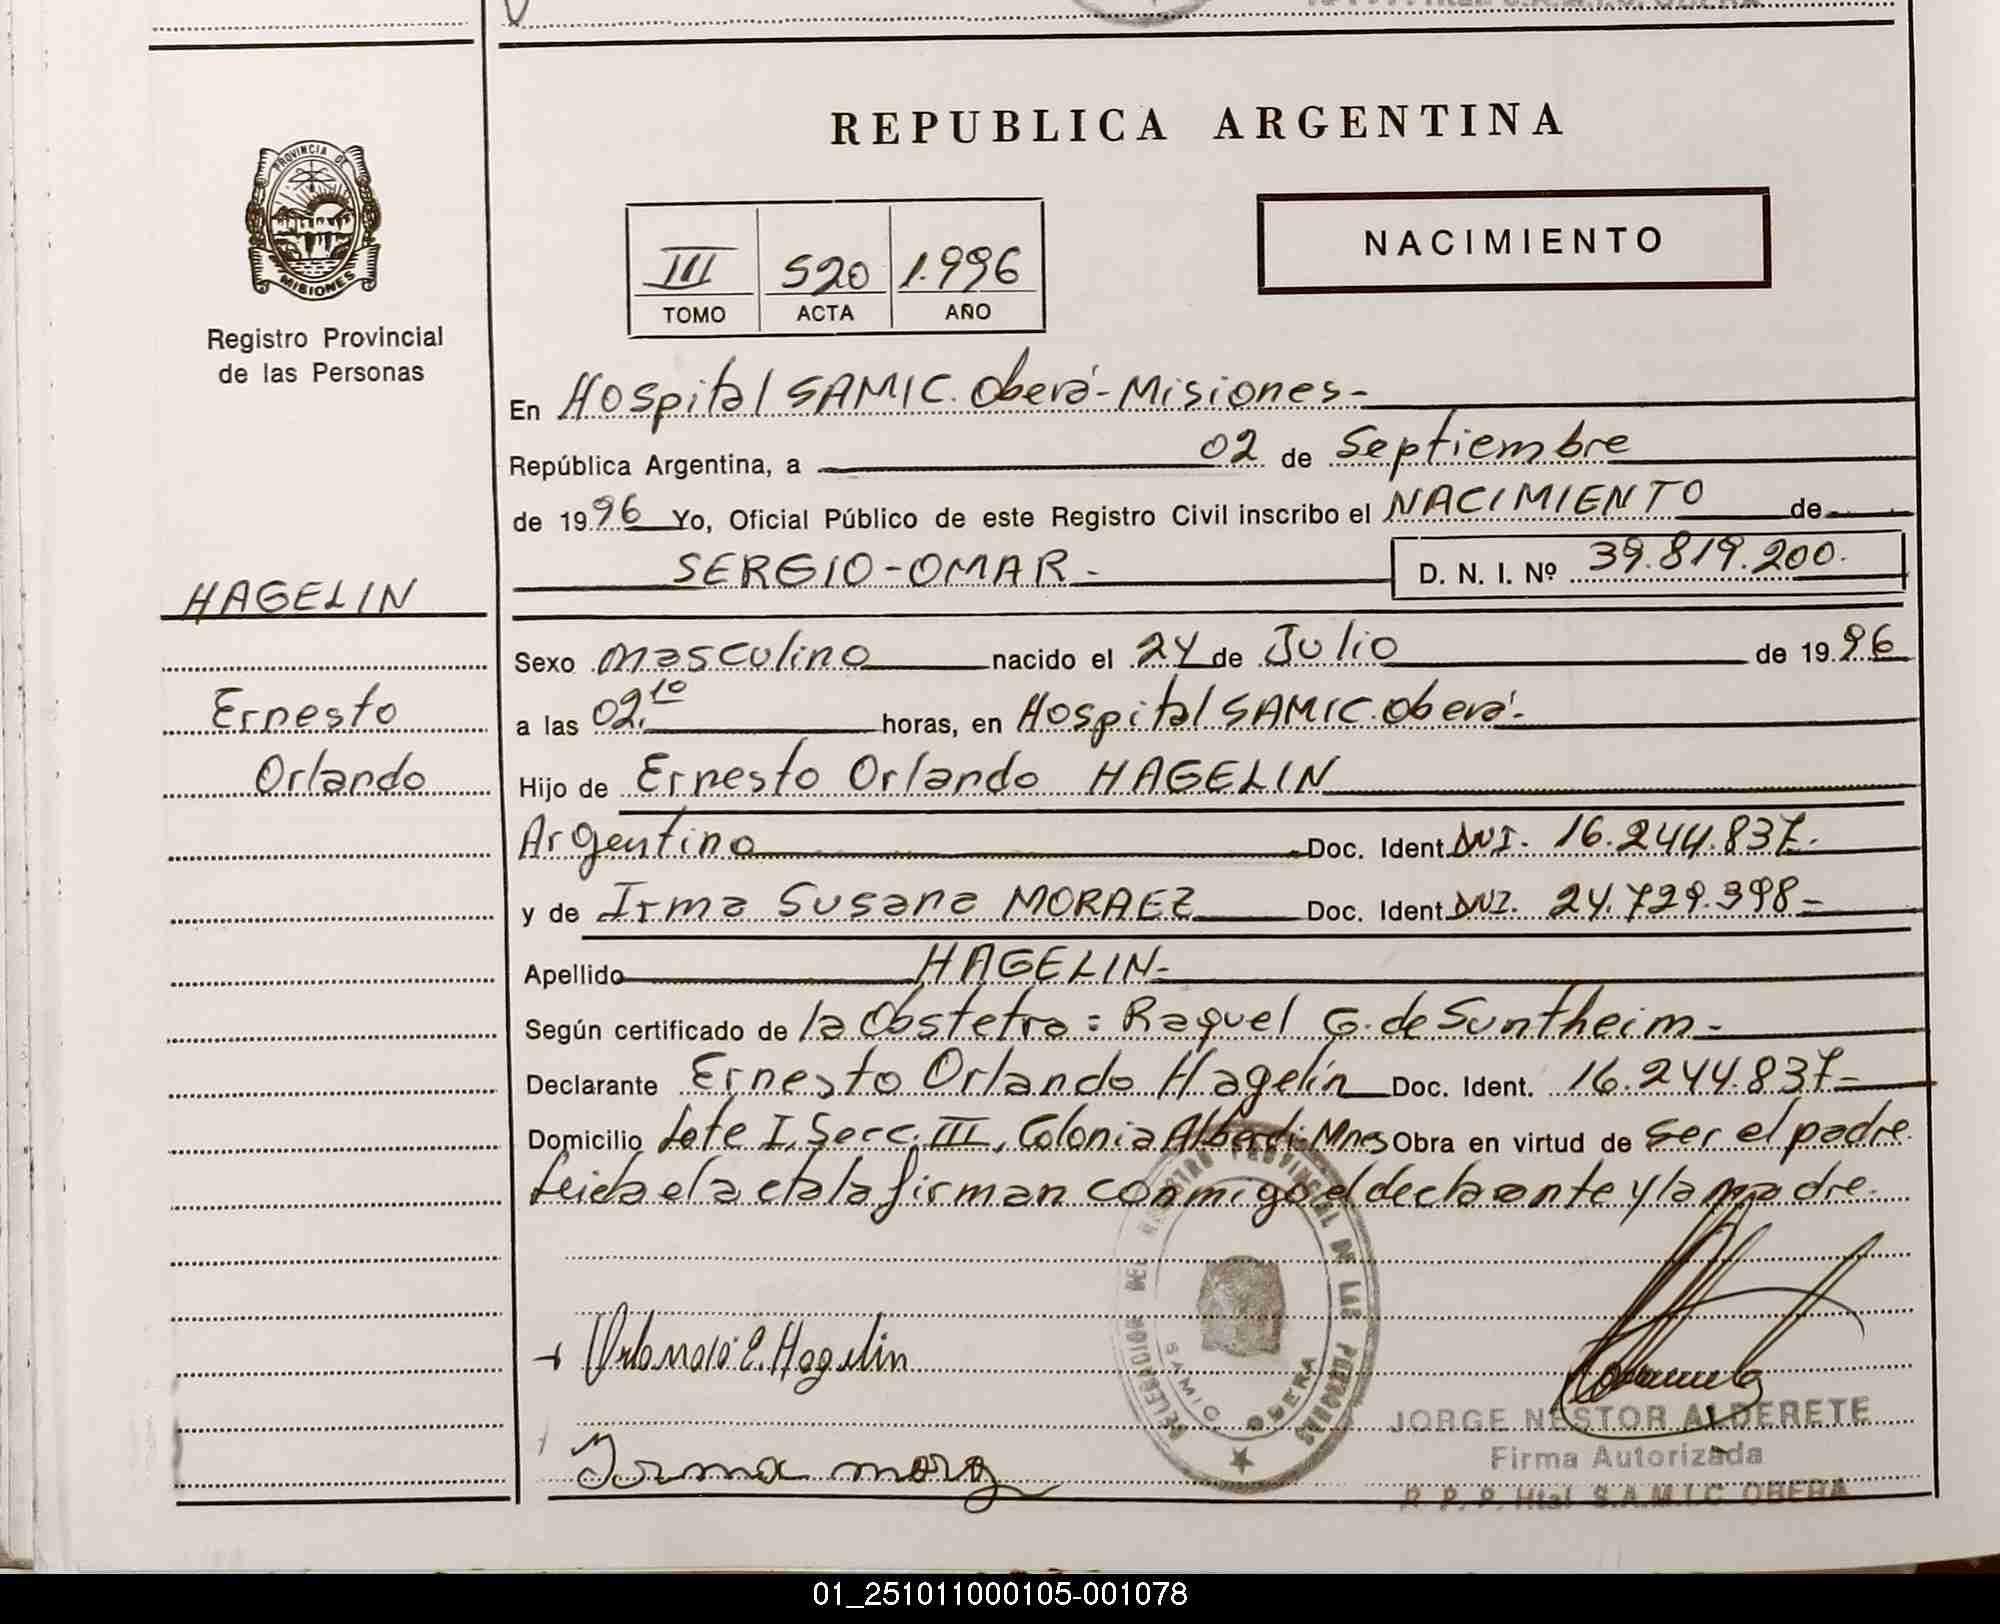 REPUBLICA ARGENTINA
PROVINCIA DE
MISIONES
Registro Provincial
de las Personas
III 520 1.996
TOMO ACTA AÑO
NACIMIENTO
En Hospital SAMIC. Oberá-Misiones-
República Argentina, a 02 de Septiembre
de 1996 Yo, Oficial Público de este Registro Civil inscribo el NACIMIENTO de
SERGIO-OMAR- D. N. I. Nº 39.819.200.
HAGELIN
Sexo masculino nacido el 24 de Julio de 1996
Ernesto
a las 02.10 horas, en Hospital SAMIC. Oberá-
Orlando
Hijo de Ernesto Orlando HAGELIN
Argentino Doc. Ident. DNI. 16.244.837.-
y de Irma Susana MORAEZ Doc. Ident. DNI. 24.729.398-
Apellido HAGELIN-
Según certificado de la Obstetra: Raquel G. de Suntheim-
Declarante Ernesto Orlando Hagelín Doc. Ident. 16.244.837-
Domicilio Lote I, Secc. III, Colonia Alberdi-Mnes Obra en virtud de ser el padre
Leida el acta la firman conmigo el declarante y la madre.
DELEGACION DEL REGISTRO PROVINCIAL DE LAS PERSONAS
SAMIC OBERA
E. Hagelin
JORGE NESTOR ALDERETE
Firma Autorizada
Irma
R. P. P. Htal S.A.M.I.C OBERA
01_251011000105-001078